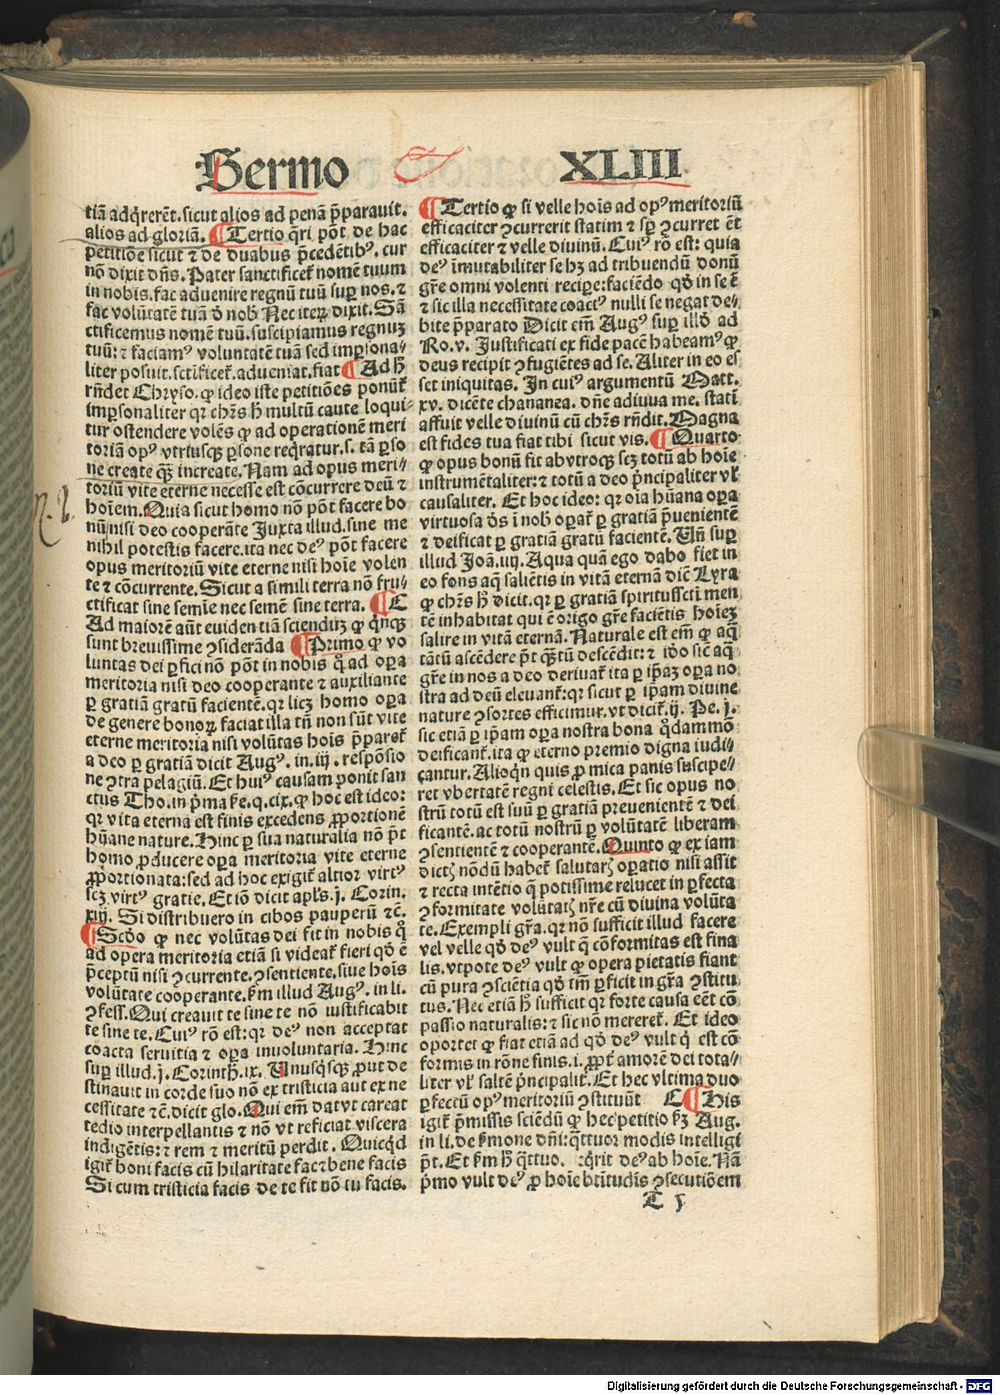 Sermo XLIII.
tiā adq̄rerēt. sicut alios ad penā p̄parauit.
alios ad gloriā. ¶ Tertio q̄ri pōt de hac
petitiōe sicut ⁊ de duabus p̄cedētibꝰ. cur
nō dixit dn̄s. Pater sanctificet̄ nomē tuum
in nobis. fac aduenire regnū tuū suꝑ nos. ⁊
fac volūtatē tuā ī nob̄ Nec iteꝝ dixit. Sā
ctificemus nomē tuū. suscipiamus regnuꝫ
tuū: ⁊ faciamꝰ voluntatē tuā sed imꝑsona⸗
liter posuit. sctificet̄. adueniat. fiat ¶ Ad h̄
rn̄det Chryso. ꝙ ideo iste petitiōes ponūt̄
imꝑsonaliter qr chr̄s h̄ multū caute loqui⸗
tur ostendere volēs ꝙ ad operationē meri
toriā opꝰ vtriusqꝫ ꝑsone reqͥratur. s. tā ꝑso
ne create qͣꝫ increate. Nam ad opus meri⸗
toriū vite eterne necesse est cōcurrere deū ⁊
hoīem. Quia sicut homo nō pōt facere bo
nū nisi deo cooperāte Juxta illud. sine me
nihil potestis facere. ita nec deꝰ pōt facere
opus meritoriū vite eterne nisi hoīe volen
te ⁊ cōcurrente. Sicut a simili terra nō fru⸗
ctificat sine semīe nec semē sine terra. ¶ C
Ad maiorē aūt euidentiā sciendūꝫ ꝙ qͥnqꝫ
sunt breuissime ꝯsiderāda ¶ Primo ꝙ vo
luntas dei ꝑfici nō pōt in nobis qͦ ad oꝑa
meritoria nisi deo cooperante ⁊ auxiliante
ꝑ gratiā gratū facientē. qr licꝫ homo oꝑa
de genere bonoꝝ faciat illa tn̄ non sūt vite
eterne meritoria nisi volūtas hoīs p̄paret̄
a deo ꝑ gratiā dicit Augꝰ. in. iij. respōsio
ne ꝯtra pelagiū. Et huiꝰ causam ponit san
ctus Tho. in p̄ma sc̄e. q. cix. ꝙ hoc est ideo:
qr vita eterna est finis excedens ꝓportionē
hūane nature. Hinc ꝑ sua naturalia nō p̄t
homo ꝓducere oꝑa meritoria vite eterne
ꝓportionata: sed ad hoc exigit̄ altior virtꝰ
scꝫ virtꝰ gratie. Et iō dicit apl̄s. j. Corin.
xiij. Si distribuero in cibos pauperū ⁊c̄.
¶ Scd̄o ꝙ nec volūtas dei fit in nobis qͦ
ad opera meritoria etiā si videat̄ fieri qd̄ ē
p̄ceptū nisi ꝯcurrente. ꝯsentiente. siue hoīs
volūtate cooperante. scd̄m illud Augꝰ. in li.
ꝯfess. Qui creauit te sine te nō iustificabit
te sine te. Cuiꝰ rō est: qr deꝰ non acceptat
coacta seruitia ⁊ oꝑa inuoluntaria. Hinc
suꝑ illud. j. Corinth̄. ix. Unusqͥsqꝫ ꝓut de
stinauit in corde suo nō ex tristicia aut ex ne
cessitate ⁊c̄. dicit glo. Qui em̄ dat vt careat
tedio interpellantis ⁊ nō vt reficiat viscera
indigētis: ⁊ rem ⁊ meritū perdit. Quicqͥd
igit̄ boni facis cū hilaritate fac ⁊ bene facis
Si cum tristicia facis de te fit nō tu facis.
¶ Tertio ꝙ si velle hoīs ad opꝰ meritoriū
efficaciter ꝯcurrerit statim ⁊ sꝑ ꝯcurret ēt
efficaciter ⁊ velle diuinū. Cuiꝰ rō est: quia
deꝰ īmutabiliter se hꝫ ad tribuendū donū
gr̄e omni volenti recipe: faciēdo qd̄ in se ē
⁊ sic illa necessitate coactꝰ nulli se negat de⸗
bite p̄parato Dicit em̄ Augꝰ suꝑ illd̄ ad
Ro. v. Justificati ex fide pacē habeamꝰ ꝙ
deus recipit ꝯfugiētes ad se. Aliter in eo es
set iniquitas. In cuiꝰ argumentū Matt.
xv. dicēte chananea. dn̄e adiuua me. statī
affuit velle diuinū cū chr̄s rn̄dit. Magna
est fides tua fiat tibi sicut vis. ¶ Quarto
ꝙ opus bonū fit ab vtroqꝫ scꝫ totū ab hoīe
instrumētaliter: ⁊ totū a deo p̄ncipaliter vl̄
causaliter. Et hoc ideo: qr oīa hūana oꝑa
virtuosa d̄s ī nob̄ oꝑat̄ ꝑ gratiā p̄uenientē
⁊ deificat ꝑ gratiā gratū facientē. Un̄ suꝑ
illud Joā. iiij. Aqua quā ego dabo fiet in
eo fons aq̄ saliētis in vitā eternā dic̄ Lyra
ꝙ chr̄s h̄ dicit. qr ꝑ gratiā spiritusscti men
tē inhabitat qui ē origo gr̄e faciētis hoīeꝫ
salire in vitā eternā. Naturale est em̄ ꝙ aq̄
tātū ascēdere p̄t qͣꝫtū descēdit: ⁊ iō sic aq̄
gr̄e in nos a deo deriuat̄ ita ꝑ ip̄aꝫ oꝑa no
stra ad deū eleuant̄: qr sicut ꝑ ip̄am diuine
nature ꝯsortes efficimur. vt dicit̄. ij. Pe. j.
sic etiā ꝑ ip̄am oꝑa nostra bona qͦdammō
deificant̄. ita ꝙ eterno premio digna iudi⸗
cantur. Alioqͥn quis ꝓ mica panis suscipe⸗
ret vbertatē regni celestis. Et sic opus no
strū totū est suū ꝑ gratiā preuenientē ⁊ dei
ficantē. ac totū nostrū ꝑ volūtatē liberam
ꝯsentientē ⁊ cooperantē. Quinto ꝙ ex iam
dict̄ nōdū habet̄ salutar̄ oꝑatio nisi assit
⁊ recta intētio q̄ potissime relucet in ꝑfecta
ꝯformitate volūtat̄ nr̄e cū diuina volūta
te. Exempli gr̄a. qr nō sufficit illud facere
vel velle qd̄ deꝰ vult q̄ cōformitas est fina
lis. vtpote deꝰ vult ꝙ opera pietatis fiant
cū pura ꝯsciētia qd̄ tm̄ ꝑficit in gr̄a ꝯstitu
tus. Nec etiā h̄ sufficit qr forte causa eēt cō
passio naturalis: ⁊ sic nō mereret̄. Et ideo
oportet ꝙ fiat etiā ad qd̄ deꝰ vult qͥ est cō
formis in rōne finis. i. ꝓpt̄ amorē dei tota⸗
liter vl̄ saltē p̄ncipalit̄. Et hec vltima duo
ꝑfectū opꝰ meritoriū ꝯstituūt C ¶ His
igit̄ p̄missis sciēdū ꝙ hec petitio scd̄m Aug.
in li. de sermone dn̄i: qͣttuor modis intelligi
p̄t. Et scd̄m h̄ qͣttuo. : qͥrit deꝰ ab hoīe. Nā
p̄mo vult deꝰ ꝓ hoīe btitudīs ꝯsecutiōem
T 5
Digitalisierung gefördert durch die Deutsche Forschungsgemeinschaft - DFG